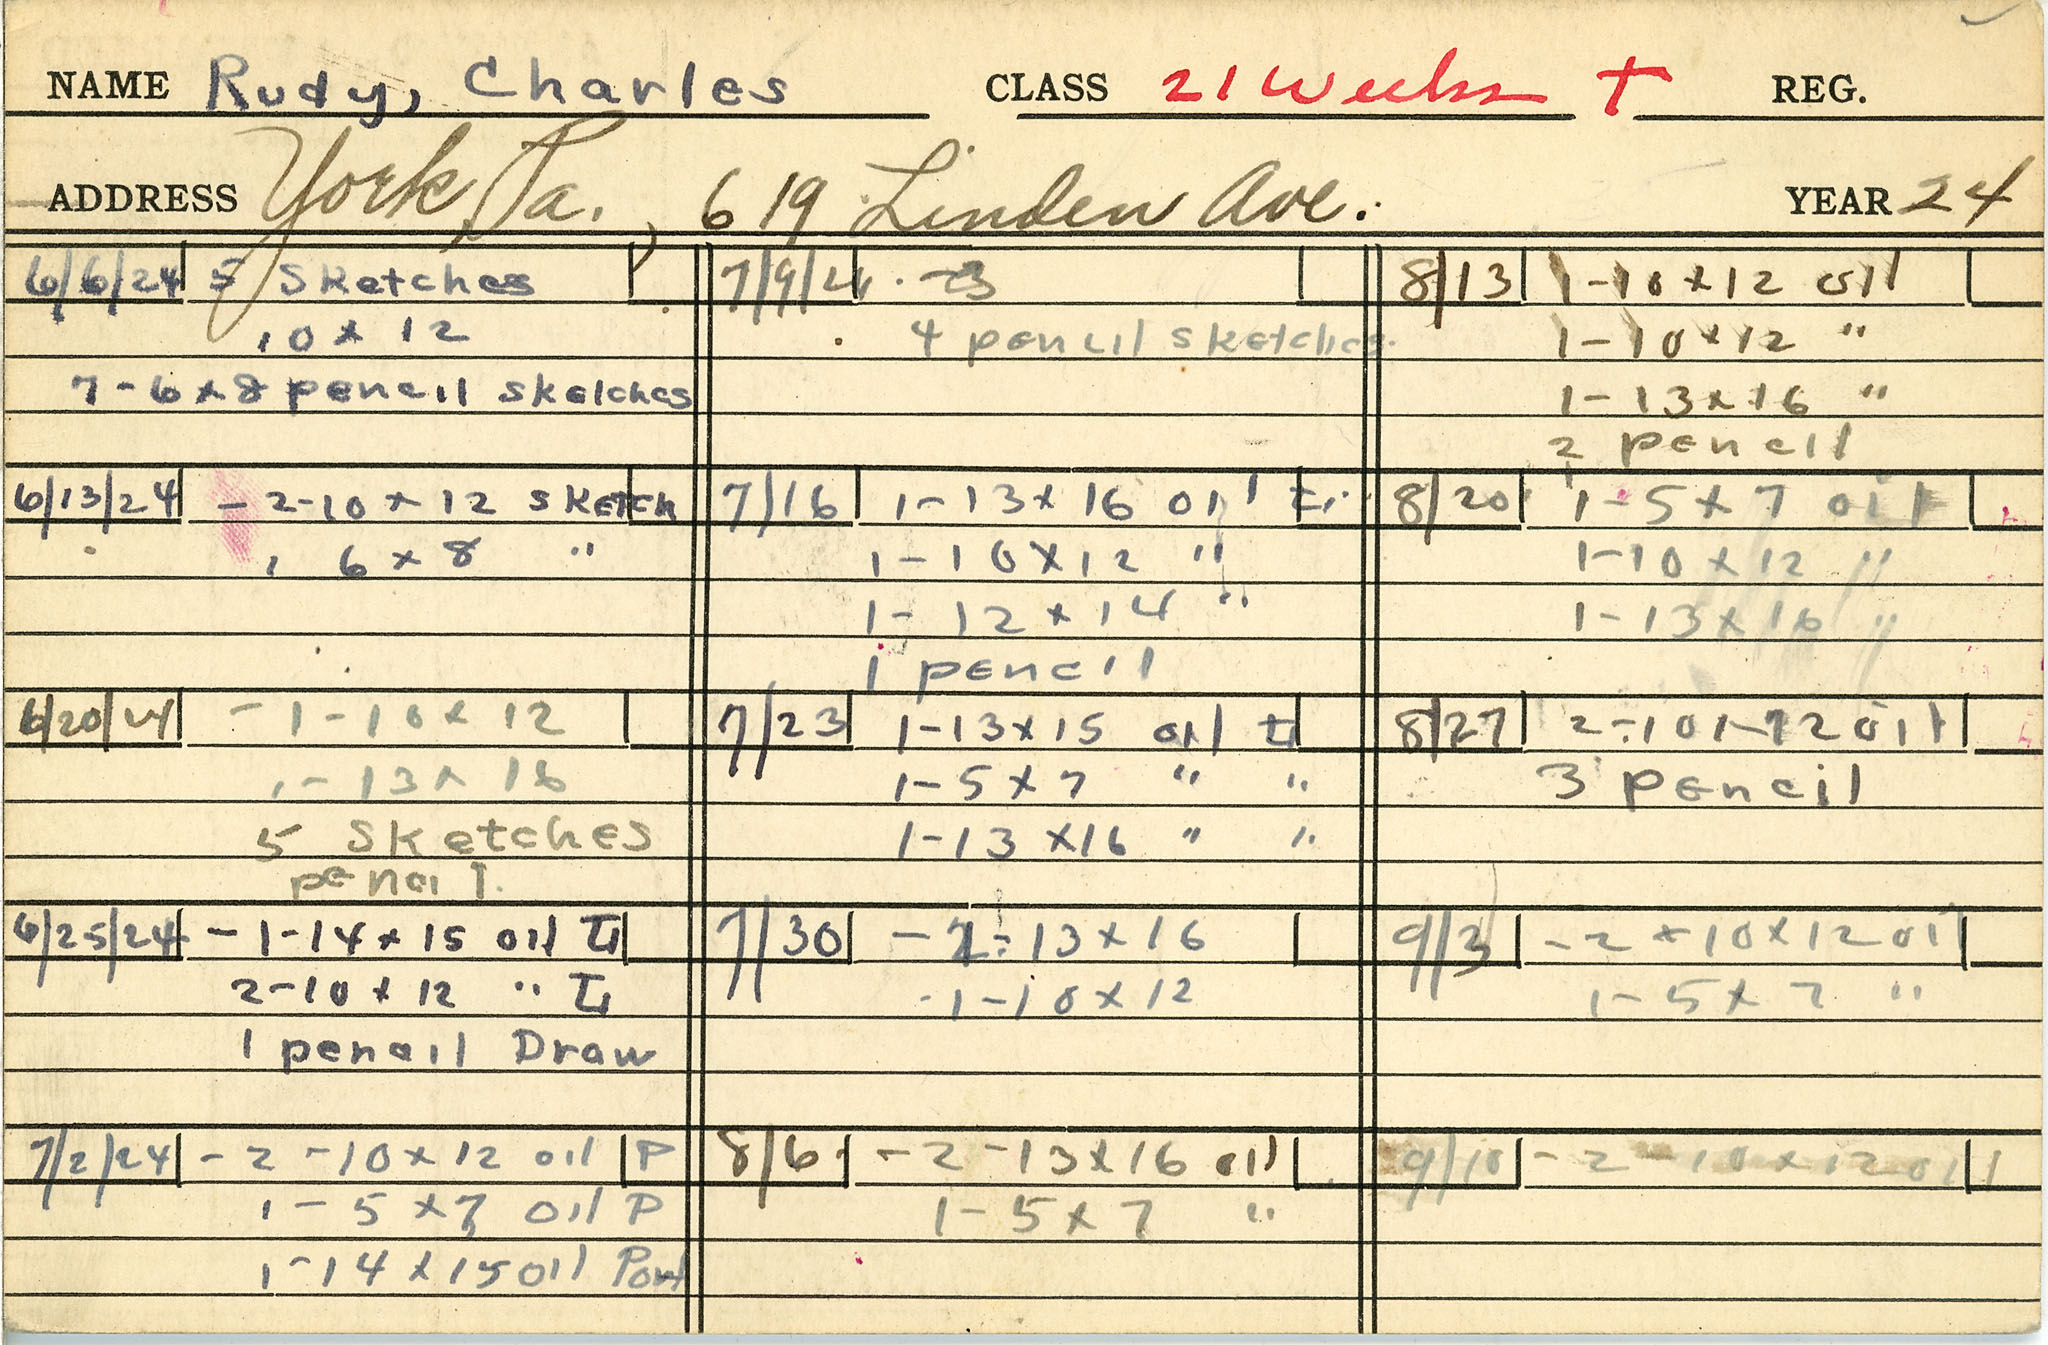 NAME Rudy, Charles CLASS 21 Weeks † REG.
ADDRESS York, Pa., 619 Linden Ave. YEAR 24
6/6/24 5 Sketches
10 x 12
7-6x8 pencil sketches
6/13/24 - 2-10 x 12 sketch
1 6 x 8 "
6/20/24 - 1-10 x 12
1-13 x 16
5 Sketches
pencil
6/25/24 - 1-14 x 15 oil
2-10 x 12 "
1 pencil Draw
7/2/24 - 2-10 x 12 oil P
1-5 x 7 oil P
1-14 x 15 oil Port
7/9/24 - 3
4 pencil sketches
7/16 1-13 x 16 oil
1-10 x 12 "
1-12 x 14 "
1 pencil
7/23 1-13 x 15 oil
1-5 x 7 " "
1-13 x 16 " "
7/30 - 2-13 x 16
1-10 x 12
8/6 - 2-13 x 16 oil
1-5 x 7 "
8/13 1-10 x 12 oil
1-10 x 12 "
1-13 x 16 "
2 pencil
8/20 1-5 x 7 oil
1-10 x 12 "
1-13 x 16 "
8/27 2-10 x 12 oil
3 pencil
9/3 - 2 - 10 x 12 oil
1-5 x 7 "
9/10 - 2-10 x 12 oil